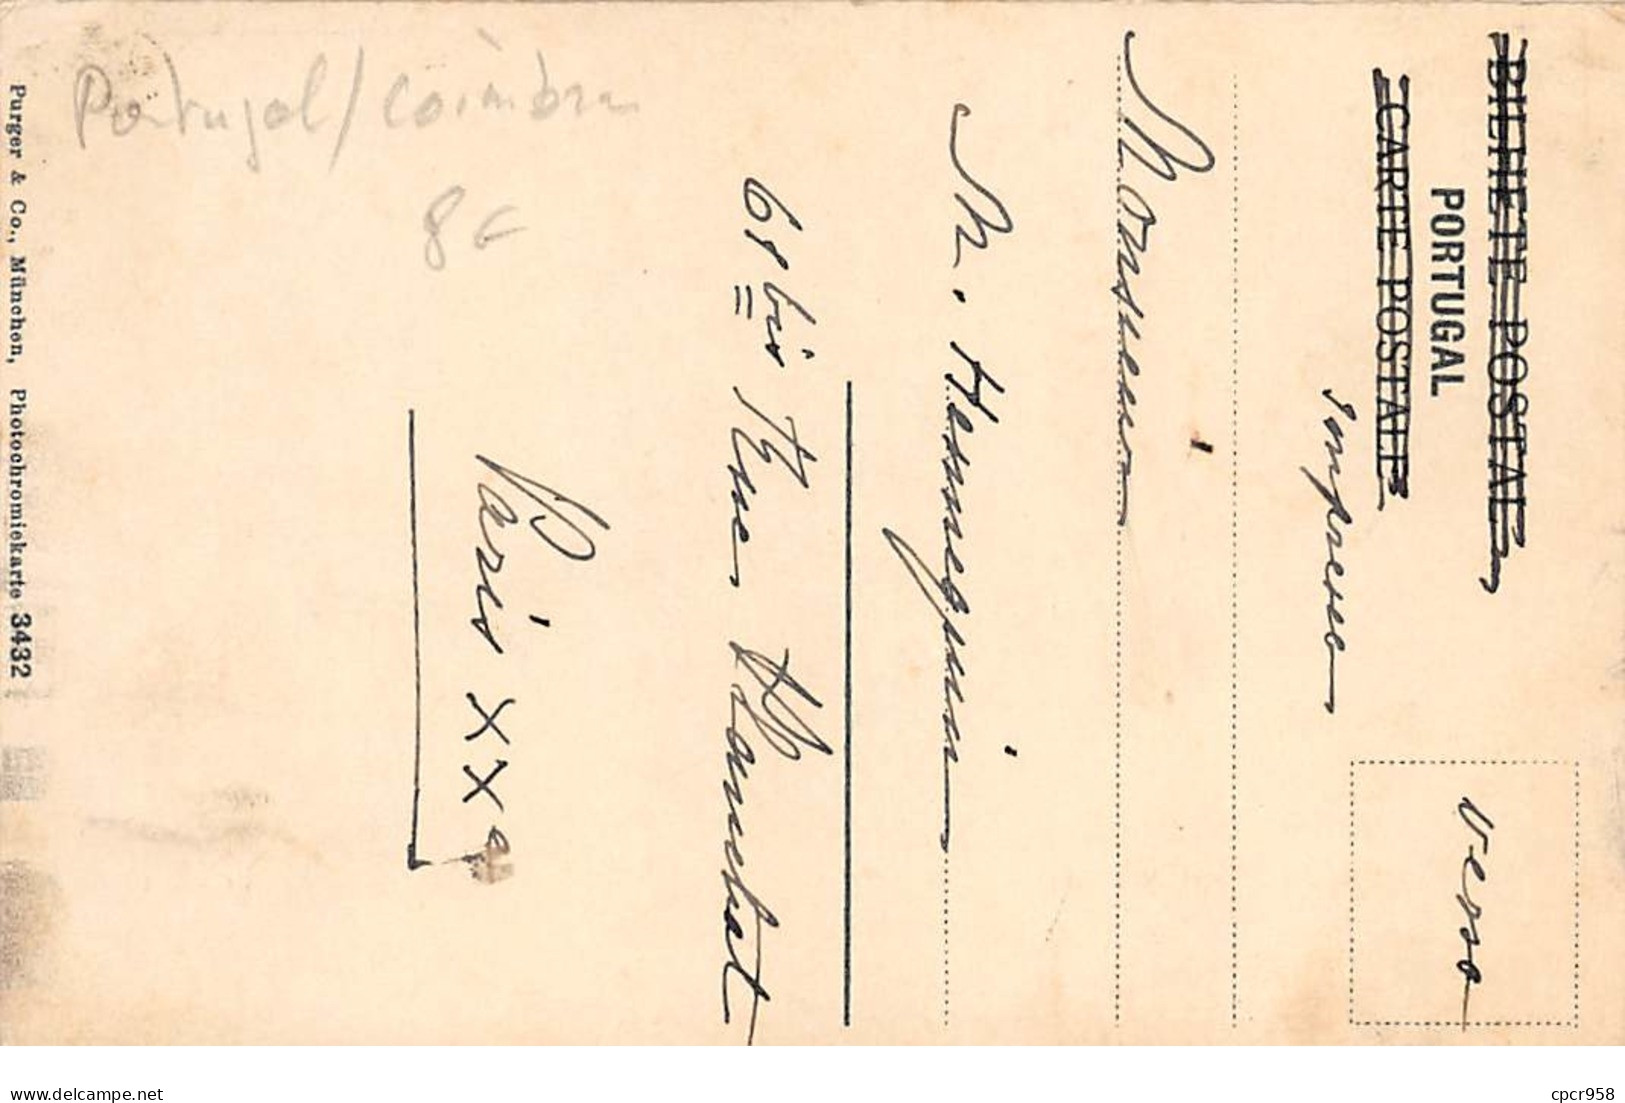 BILHETE POSTAL
PORTUGAL
CARTE POSTALE
Impresso
Verso
Monsieur
M. Hennequin
68 bis Rue
Paris XXe
Portugal / Coimbra
8€
Purger & Co., München, Photochromiekarte 3432
www.delcampe.net
cpcr958